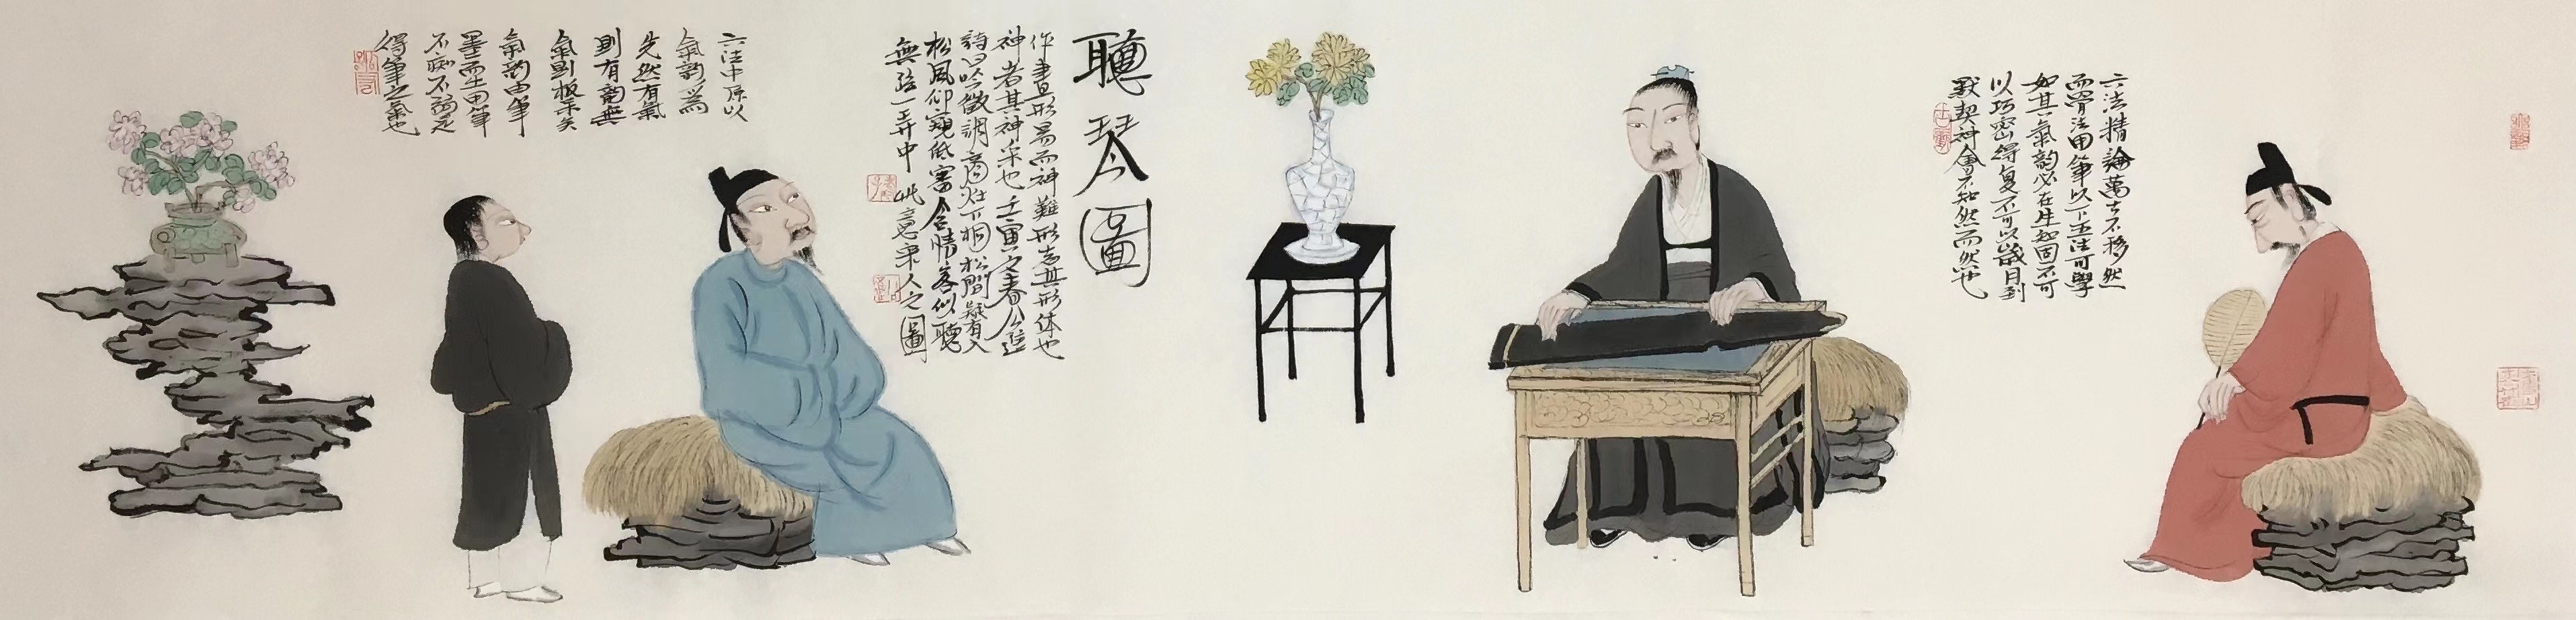 六法精論萬古不移然
而骨法用筆以下五法可學
如其氣韻必在生知固不可
以巧密得复不可以歲月到
默契神會不知然而然也
聽琴圖
作畫且形易而神難形者其形体也
神者其神采也壬寅之春
詩曰吟徵調商灶下桐松間疑有入
松風仰窺低審含情客似聽
無弦一弄中此意宋人之圖
六法中原以
氣韻為
先然有氣
則有韻無
氣則板呆矣
氣韻由筆
墨而生由筆
不痴不弱是
得筆之氣也